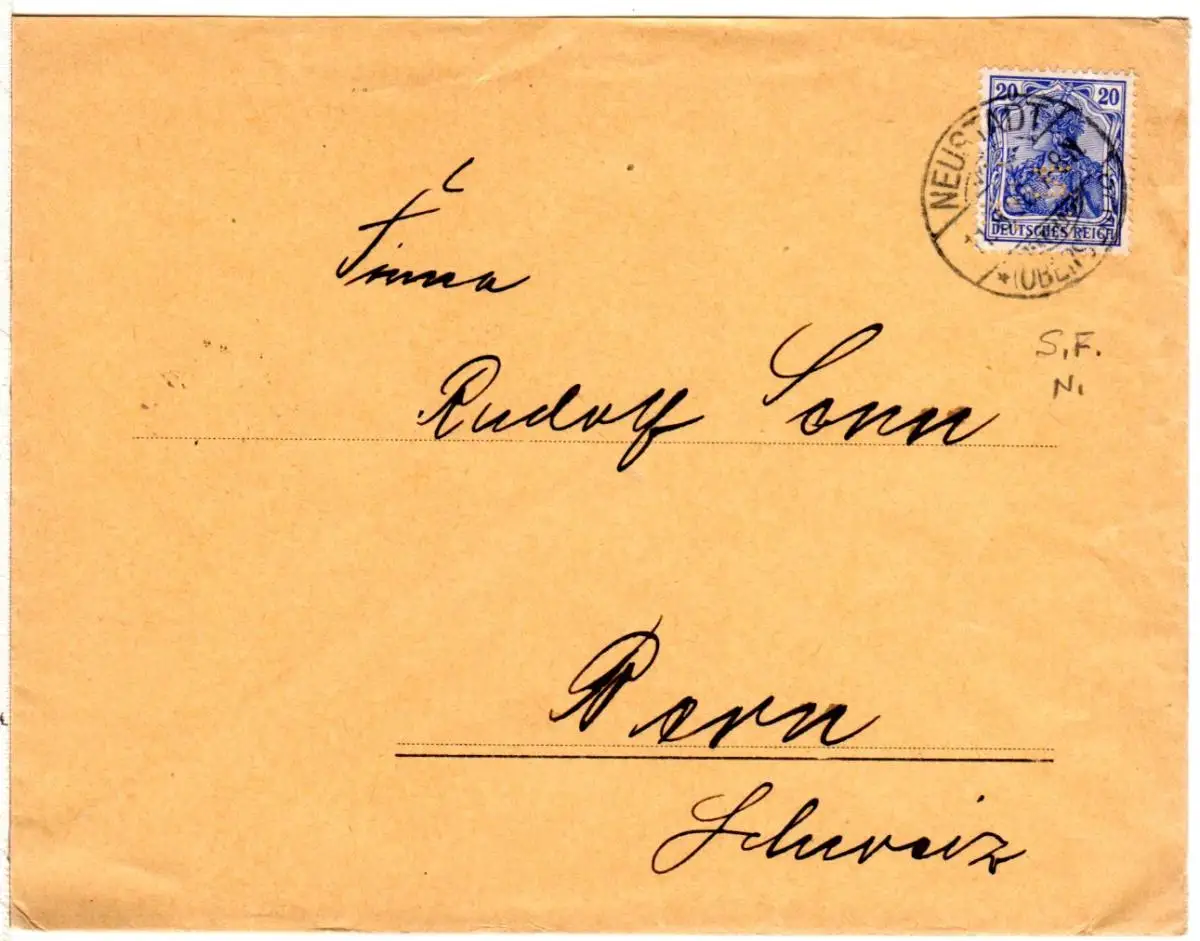 20 20
DEUTSCHES REICH
NEUSTADT
*(OBERS
Firma
S.F.
N.
Rudolf Senn
Bern
Schweiz